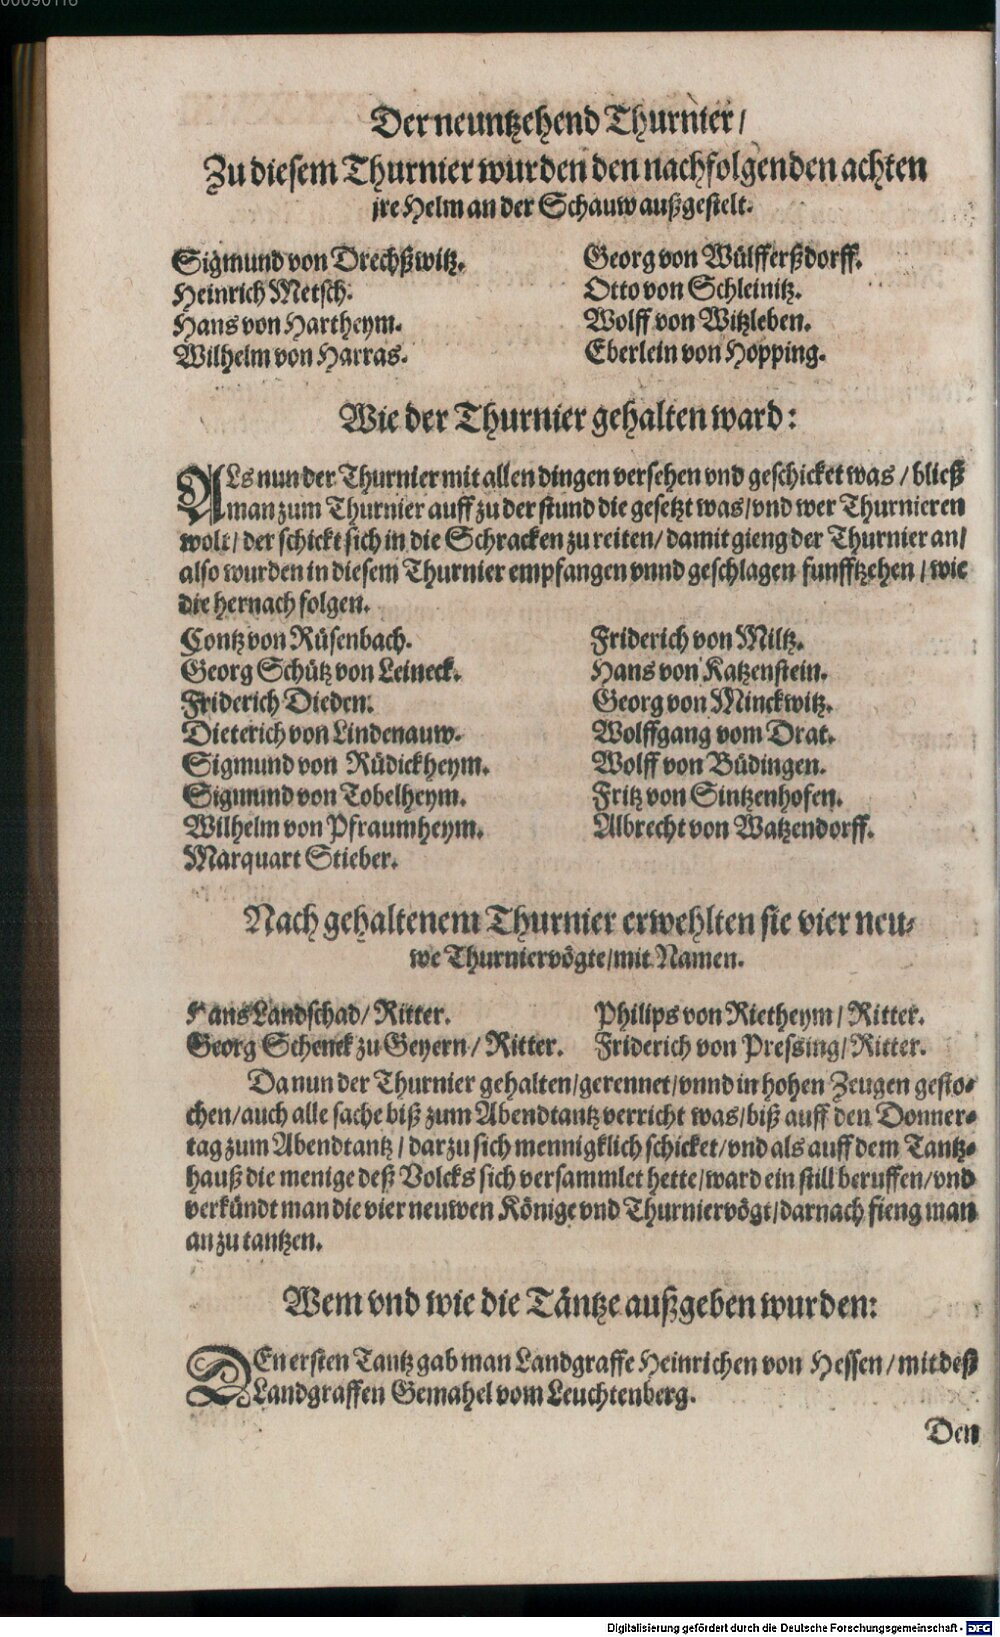 Der neuntzehend Thurnier/
Zu diesem Thurnier wurden den nachfolgenden achten
jre Helm an der Schauw außgestelt.
Sigmund von Drechßwitz.
Heinrich Metsch.
Hans von Hartheym.
Wilhelm von Harras.
Georg von Wülfferßdorff.
Otto von Schleinitz.
Wolff von Witzleben.
Eberlein von Hopping.
Wie der Thurnier gehalten ward:
ALs nun der Thurnier mit allen dingen versehen vnd geschicket was / bließ
man zum Thurnier auff zu der stund die gesetzt was/vnd wer Thurnieren
wolt/ der schickt sich in die Schracken zu reiten/ damit gieng der Thurnier an/
also wurden in diesem Thurnier empfangen vnnd geschlagen funfftzehen / wie
die hernach folgen.
Contz von Rüsenbach.
Georg Schütz von Leineck.
Friderich Dieden.
Dieterich von Lindenauw.
Sigmund von Rüdickheym.
Sigmund von Tobelheym.
Wilhelm von Pfraumheym.
Marquart Stieber.
Friderich von Miltz.
Hans von Katzenstein.
Georg von Minckwitz.
Wolffgang vom Drat.
Wolff von Büdingen.
Fritz von Sintzenhofen.
Albrecht von Watzendorff.
Nach gehaltenem Thurnier erwehlten sie vier neu-
we Thurniervögte/mit Namen.
Hans Landschad/ Ritter.
Georg Schenck zu Geyern / Ritter.
Philips von Rietheym / Ritter.
Friderich von Pressing/ Ritter.
Da nun der Thurnier gehalten/gerennet/vnnd in hohen Zeugen gesto-
chen/auch alle sache biß zum Abendtantz verricht was/biß auff den Donner-
tag zum Abendtantz / darzu sich mennigklich schicket/vnd als auff dem Tantz-
hauß die menige deß Volcks sich versammlet hette/ward ein still beruffen/vnd
verkündt man die vier neuwen Könige vnd Thurniervögt/darnach fieng man
an zu tantzen.
Wem vnd wie die Täntze außgeben wurden:
DEn ersten Tantz gab man Landgraffe Heinrichen von Hessen / mit deß
Landgraffen Gemahel vom Leuchtenberg.
Den
Digitalisierung gefördert durch die Deutsche Forschungsgemeinschaft - DFG